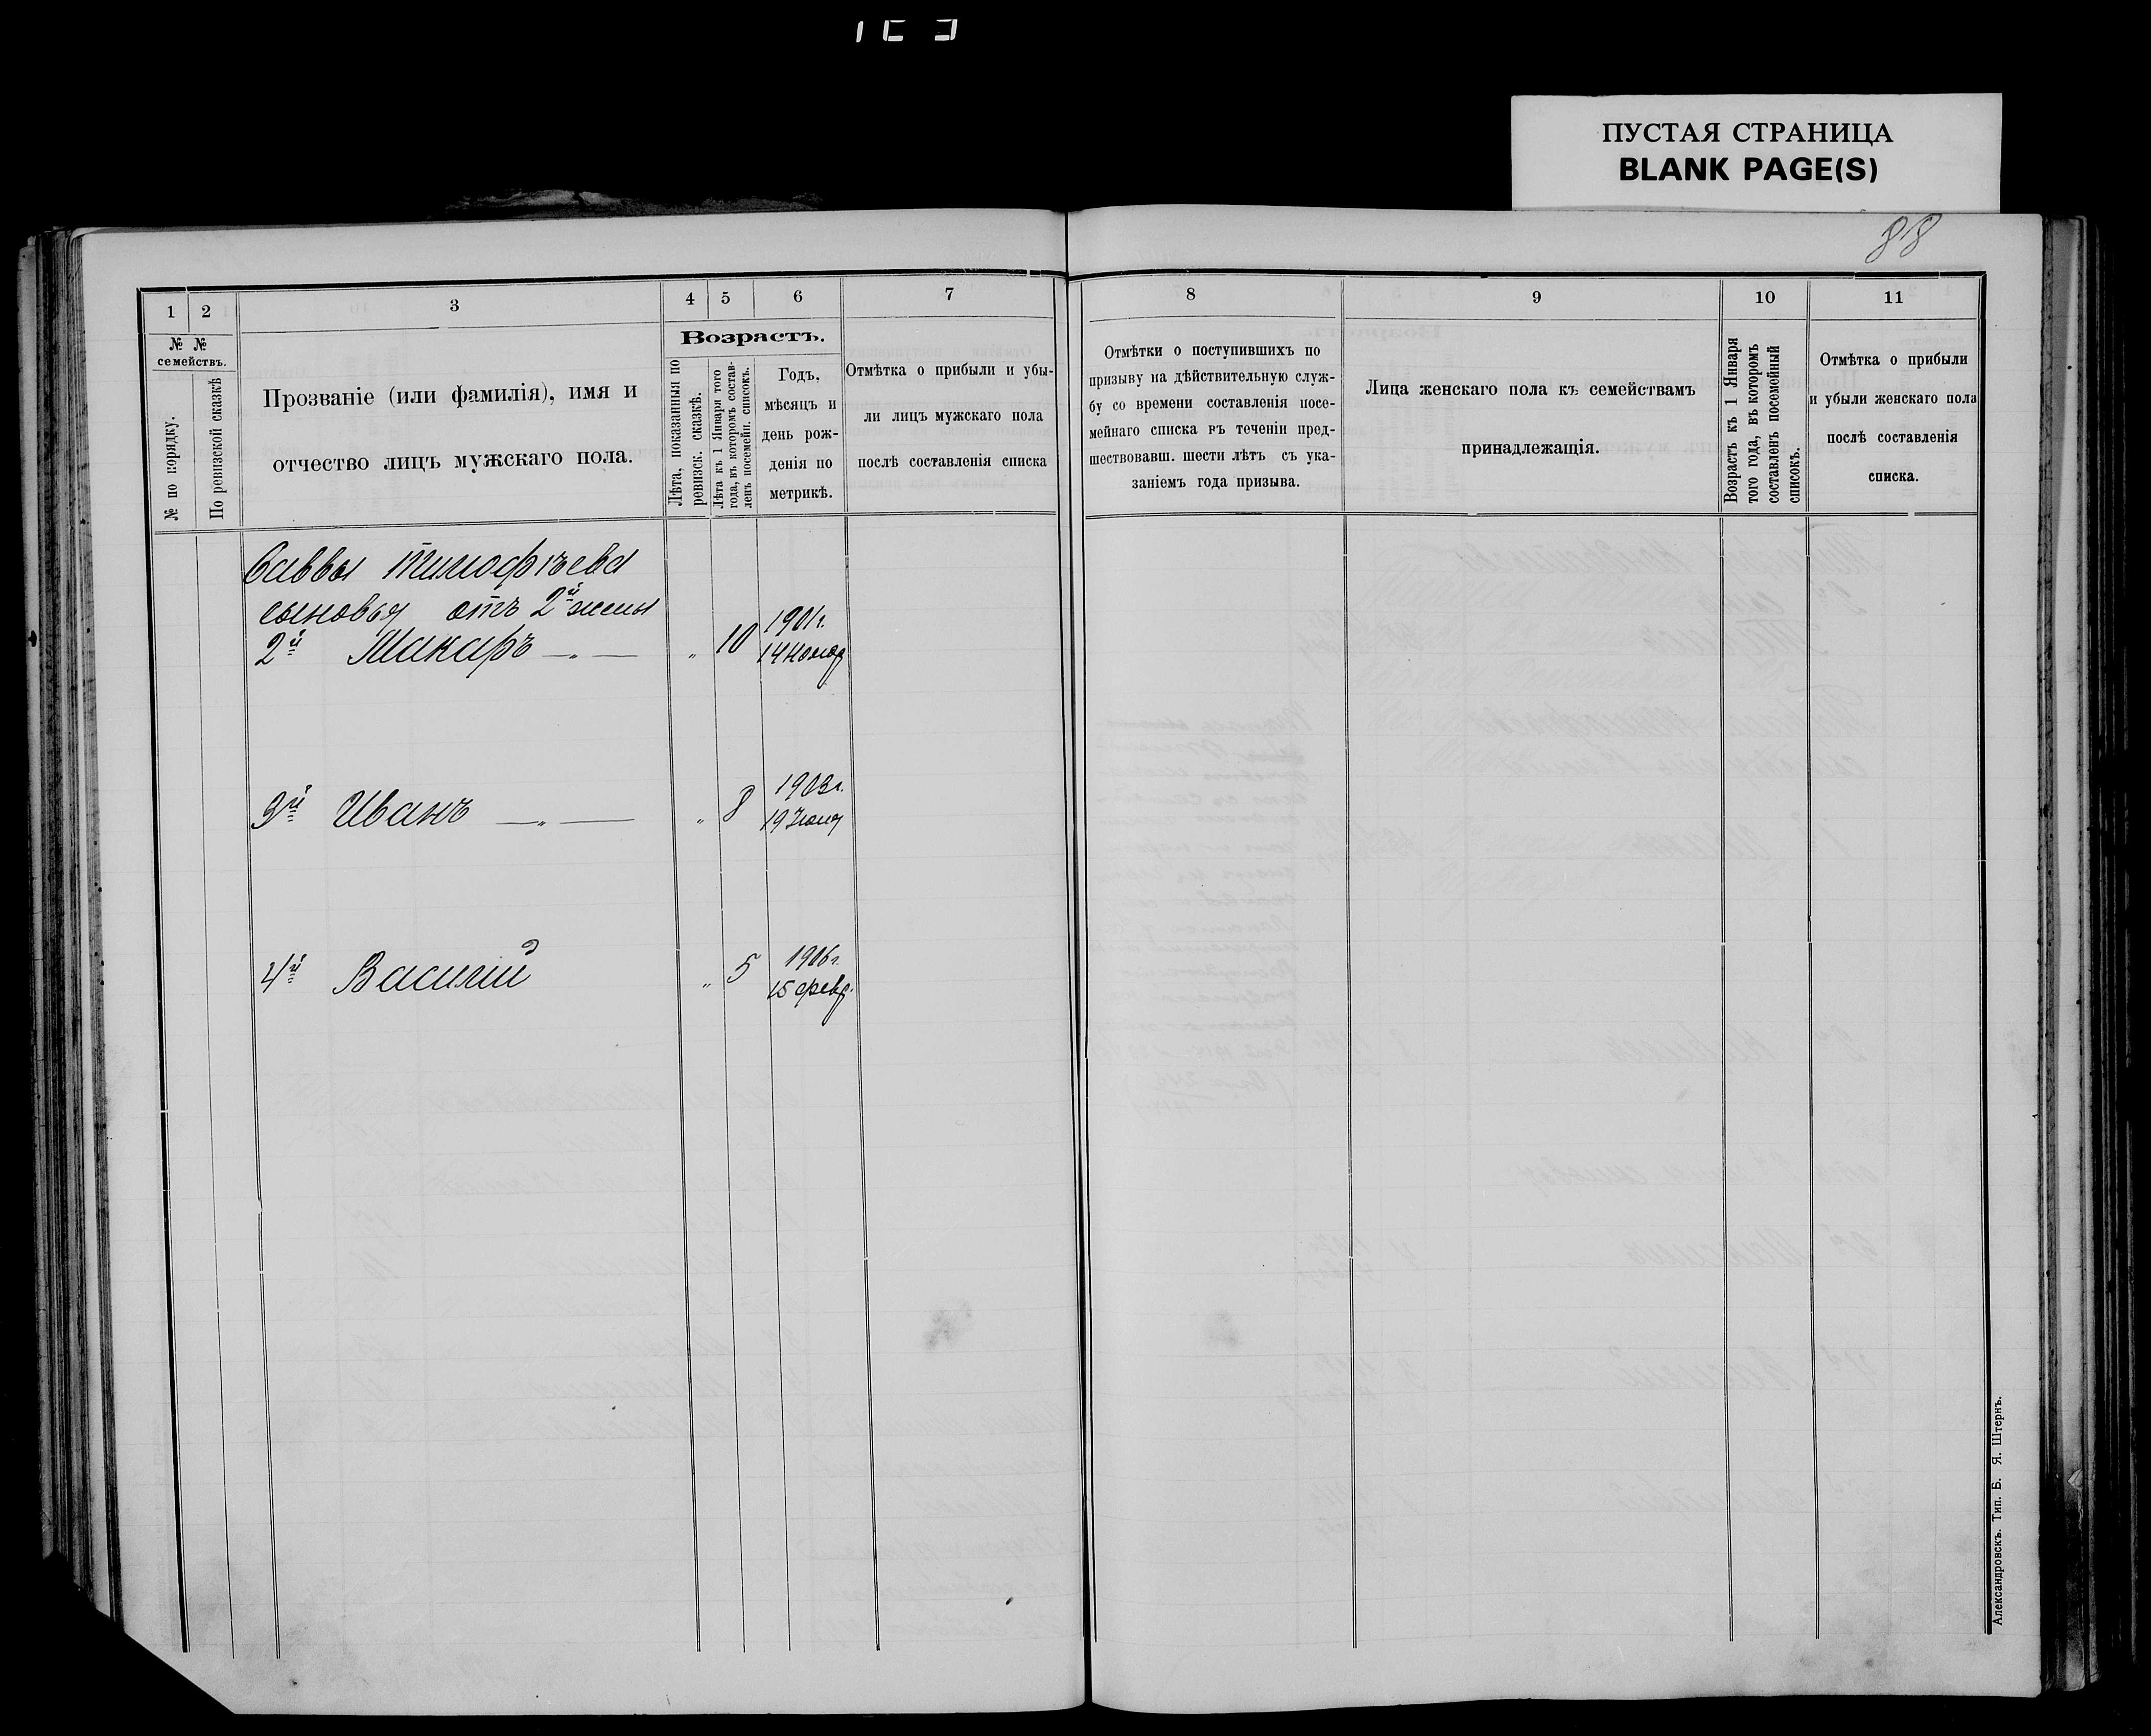 ПУСТАЯ СТРАНИЦА
BLANK PAGE(S)
88
1 2 3 4 5 6 7
№ № семействъ.
№ по порядку.
По ревизской сказкѣ
Прозваніе (или фамилія), имя и
отчество лицъ мужскаго пола.
Возрастъ.
Лѣта, показанныя по
ревизск. сказкѣ.
Лѣта къ 1 Января того
года, въ которомъ состав-
ленъ посемейн. списокъ.
Годъ,
мѣсяцъ и
день рож-
денія по
метрикѣ.
Отмѣтка о прибыли и убы-
ли лицъ мужскаго пола
послѣ составленія списка
Саввы Тимофѣева
сыновья отъ 2й жены
2й Макаръ —„— „ 10 1901г.
14
3й Иванъ —„— „ 8 1903г.
19
4й Василій „ 5 1906г.
15 февр.
8 9 10 11
Отмѣтки о поступившихъ по
призыву на дѣйствительную служ-
бу со времени составленія посе-
мейнаго списка въ теченіи пред-
шествовавш. шести лѣтъ съ ука-
заніемъ года призыва.
Лица женскаго пола къ семействамъ
принадлежащія.
Возрастъ къ 1 Января
того года, въ которомъ
составленъ посемейный
списокъ.
Отмѣтка о прибыли
и убыли женскаго пола
послѣ составленія
списка.
Александровскъ. Тип. Б. Я. Штернъ.